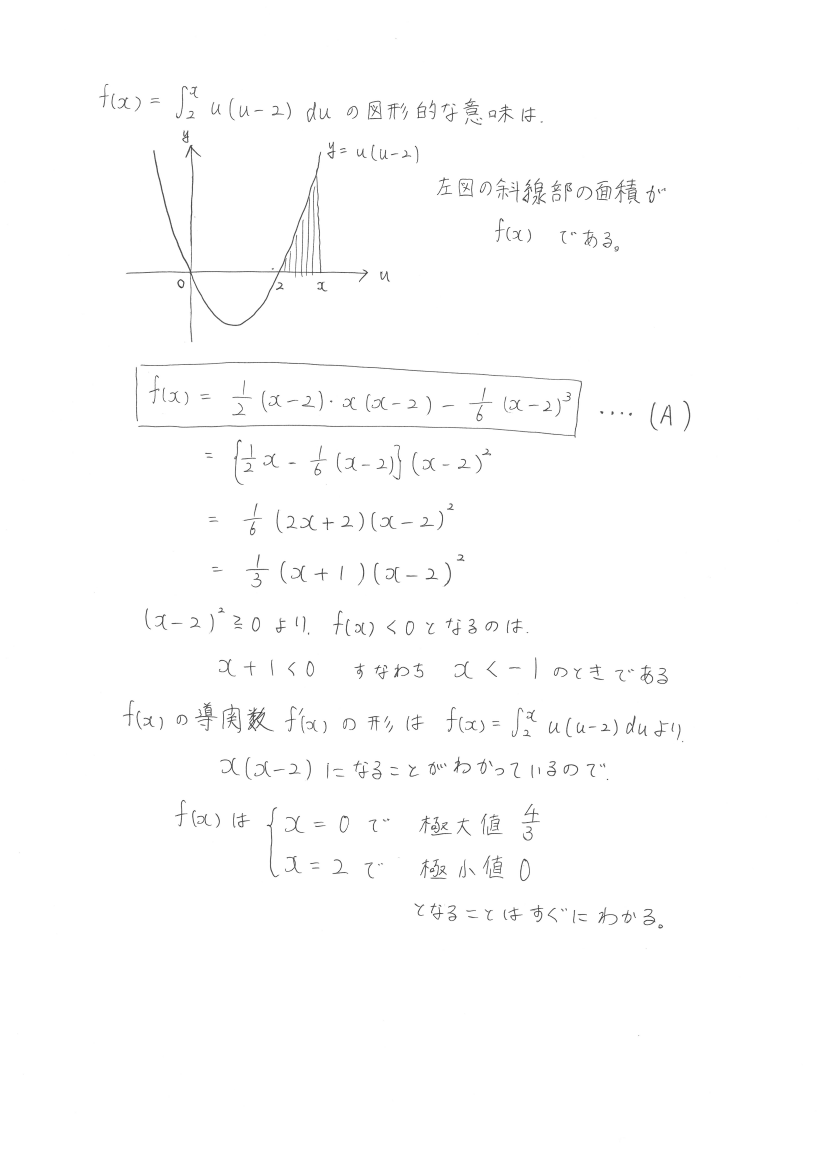 f(x) = ∫₂ˣ u(u-2) du の図形的な意味は.
y
y = u(u-2)
左図の斜線部の面積が
f(x) である。
0 2 x u
f(x) = 1/2 (x-2)・x(x-2) - 1/6 (x-2)³ ‥‥ (A)
= {1/2 x - 1/6 (x-2)}(x-2)²
= 1/6 (2x+2)(x-2)²
= 1/3 (x+1)(x-2)²
(x-2)² ≧ 0 より. f(x) < 0 となるのは.
x+1 < 0 すなわち x < -1 のときである
f(x) の導関数 f'(x) の形は f(x) = ∫₂ˣ u(u-2) du より.
x(x-2) になることがわかっているので.
f(x) は { x = 0 で 極大値 4/3
x = 2 で 極小値 0
となることはすぐにわかる。